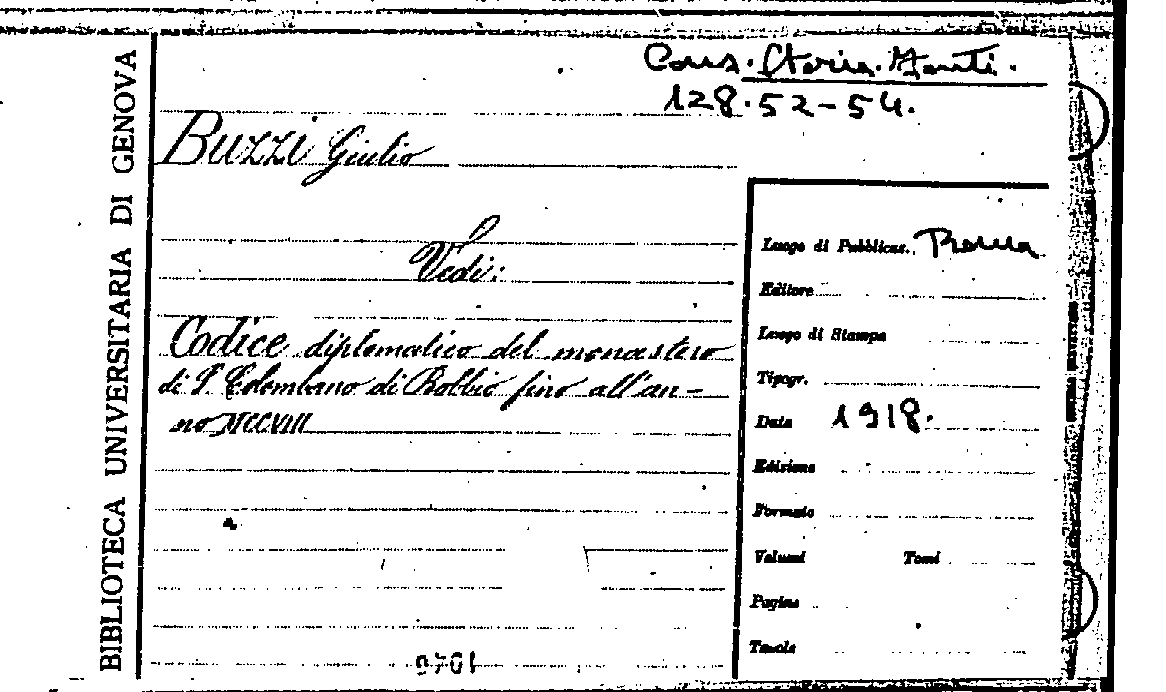 BIBLIOTECA UNIVERSITARIA DI GENOVA
Cons. Storia. Monti.
128.52-54.
BUZZI Giulio
Vedi:
Codice diplomatico del monastero
di S. Colombano di Bobbio fino all'an-
no MCCVIII
Luogo di Pubblicaz. Roma
Editore
Luogo di Stampa
Tipogr.
Data 1918.
Edizione
Formato
Volumi Tomi
Pagine
Tavole